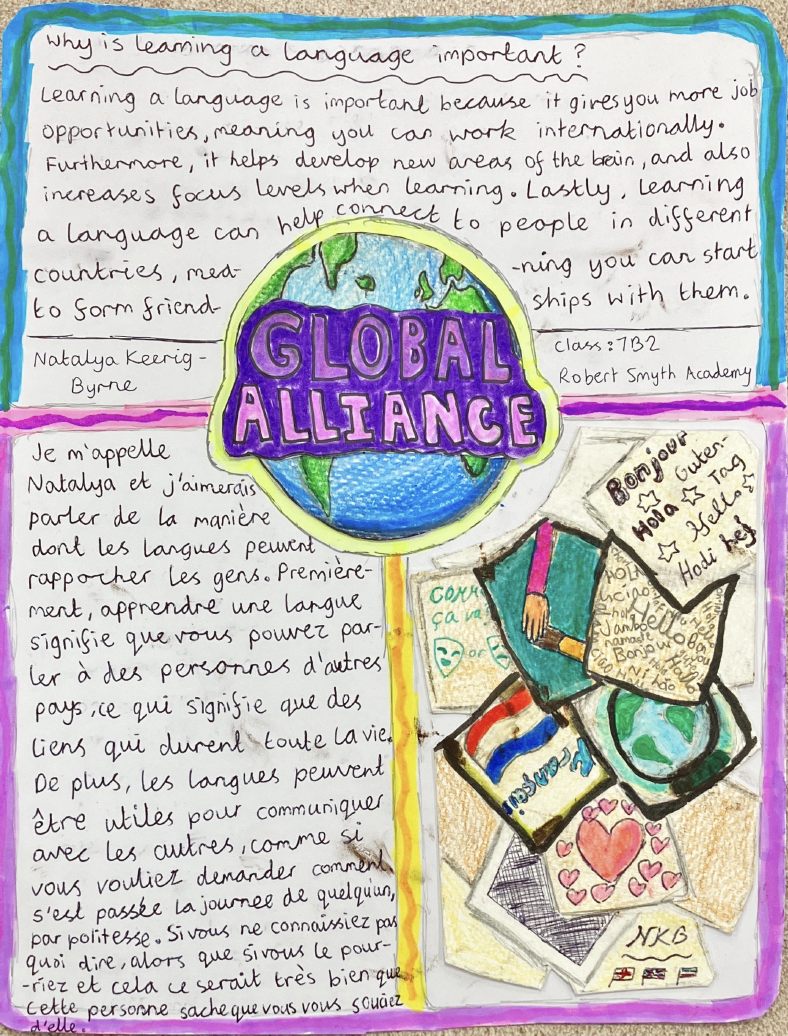 Why is learning a language important?
Learning a language is important because it gives you more job
opportunities, meaning you can work internationally.
Furthermore, it helps develop new areas of the brain, and also
increases focus levels when learning. Lastly, learning
a language can help connect to people in different
countries, mea- -ning you can start
to form friend- ships with them.
GLOBAL
ALLIANCE
Natalya Keerig-
Byrne
class: 7B2
Robert Smyth Academy
Je m'appelle
Natalya et j'aimerais
parler de la manière
dont les langues peuvent
rapprocher les gens. Première-
ment, apprendre une langue
signifie que vous pouvez par-
ler à des personnes d'autres
pays, ce qui signifie que des
liens qui durent toute la vie.
De plus, les langues peuvent
être utiles pour communiquer
avec les autres, comme si
vous vouliez demander comment
s'est passée la journée de quelqu'un,
par politesse. Si vous ne connaissiez pas
quoi dire, alors que si vous le pour-
-riez et cela ce serait très bien que
cette personne sache que vous vous souciez
d'elle.
Bonjour
Guten-
Tag
Hola
Hello
Hadi hej
ça va
or
HOLA
ciao
Hello
Jambo
Bonjour
Français
NKB